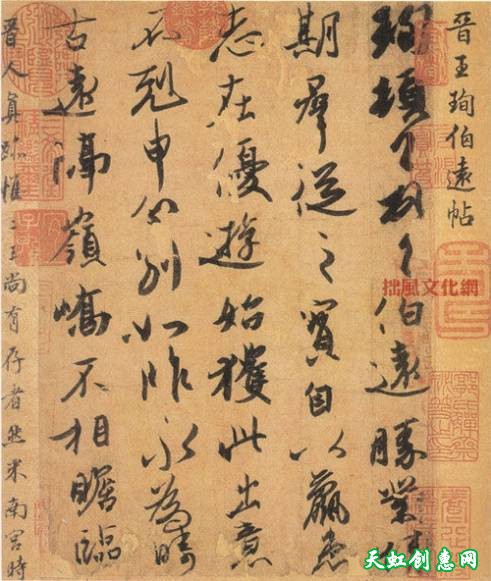 晉王珣伯遠帖
珣頓首頓首伯遠勝業情
期羣從之寶自以羸患
志在優遊始獲此出意
不剋申分別如昨永為疇
古遠隔嶺嶠不相瞻臨
晉人真跡惟二王尚有存者然米南宮時
拙風文化網
天虹创惠网